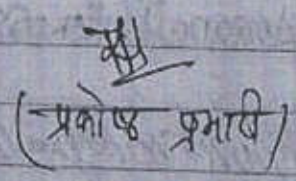 (प्रकोष्ठ प्रभारी)